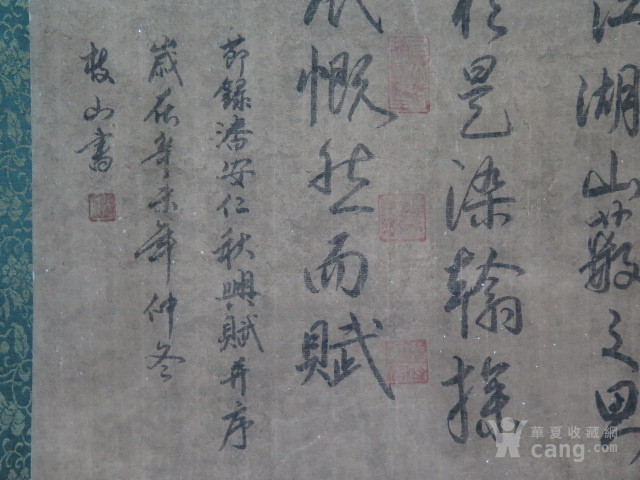 江湖山薮之思
於是染翰操
慨然而赋
节録潘安仁秋興赋并序
歲在辛未年仲冬
枝山書
華夏收藏網
cang.com